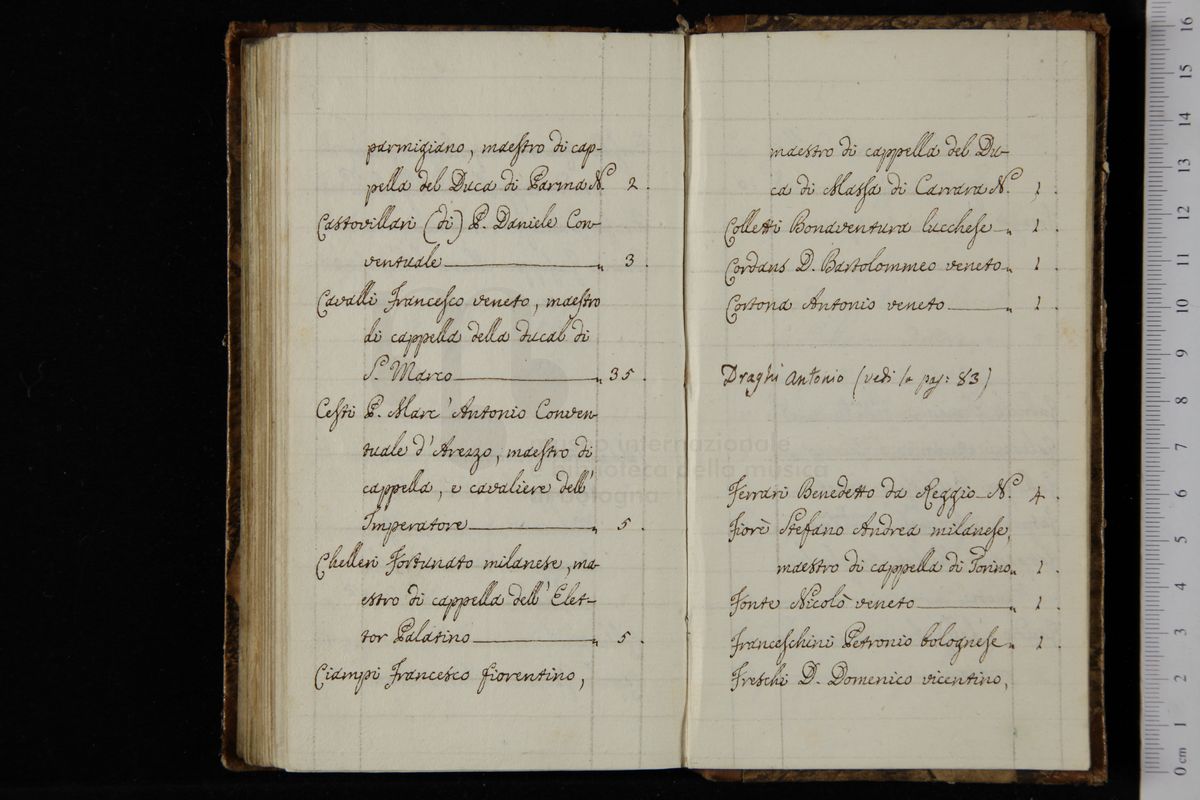 parmigiano, maestro di cap-
pella del Duca di Parma N.° 2.
Castovillari (di) P. Daniele Con-
ventuale „ 3.
Cavalli Francesco veneto, maestro
di cappella della ducal di
S. Marco „ 35.
Cesti P. Marc' Antonio Conven-
tuale d'Arezzo, maestro di
cappella, e cavaliere dell'
Imperatore „ 5.
Chelleri Fortunato milanese, ma-
estro di cappella dell' Elet-
tor Palatino „ 5.
Ciampi Francesco fiorentino,
maestro di cappella del Du-
ca di Massa di Carrara N.° 1.
Colletti Bonaventura lucchese „ 1.
Cordans D. Bartolommeo veneto „ 1.
Cortona Antonio veneto „ 1.
Draghi Antonio (vedi la pag: 83)
Ferrari Benedetto da Reggio N.° 4.
Fiorè Stefano Andrea milanese,
maestro di cappella di Torino „ 1.
Fonte Nicolò veneto „ 1.
Franceschini Petronio bolognese „ 1.
Freschi D. Domenico vicentino,
museo internazionale
biblioteca della musica
bologna
0 cm 1 2 3 4 5 6 7 8 9 10 11 12 13 14 15 16